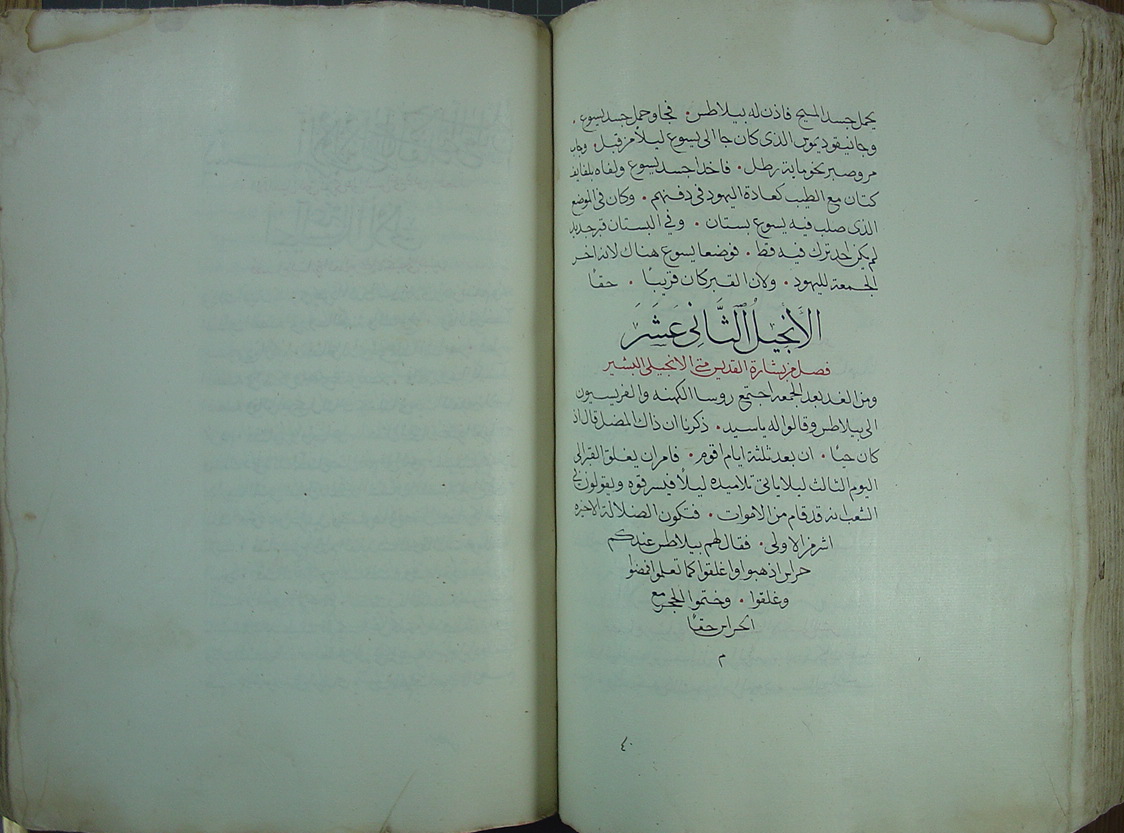 يحمل جسد المسيح فاذن له بيلاطس . فجا وحمل جسد يسوع .
وجا نيقوديموس الذى كان جا الى يسوع ليلاً من قبل . وجاب
مر وصبر نحو ماية رطل . فاخدا جسد يسوع ولفاه بلفايف
كتان مع الطيب كعادة اليهود فى دفنهم . وكان فى الموضع
الذى صلب فيه يسوع بستان . وفى البستان قبر جديد
لم يكن احد ترك فيه قط . فوضعا يسوع هناك لانه اخر
الجمعة لليهود . ولان القبر كان قريبًا . حقًا
الأَنجِيلُ الثَّانِى عَشَرَ
فصل من بشارة القديس متى الانجيلى البشير
ومن الغد بعد الجمعه اجتمع روسا الكهنه والفريسيون
الى بيلاطس وقالوا له ياسيد . ذكرنا ان ذاك المضل قال اذ
كان حيًا . ان بعد ثلثة ايام اقوم . فامر ان يغلق القبر الى
اليوم الثالث ليلا ياتى تلاميده ليلاً فيسرقوه ويقولون فى
الشعب انه قد قام من الاموات . فتكون الضلالة الاخيره
اشر من الاولى . فقال لهم بيلاطس عندكم
حراس اذهبوا واغلقوا كما تعلموا فمضوا
وغلقوا . وختموا الحجر مع
الحراس حقًا
م
٤٠